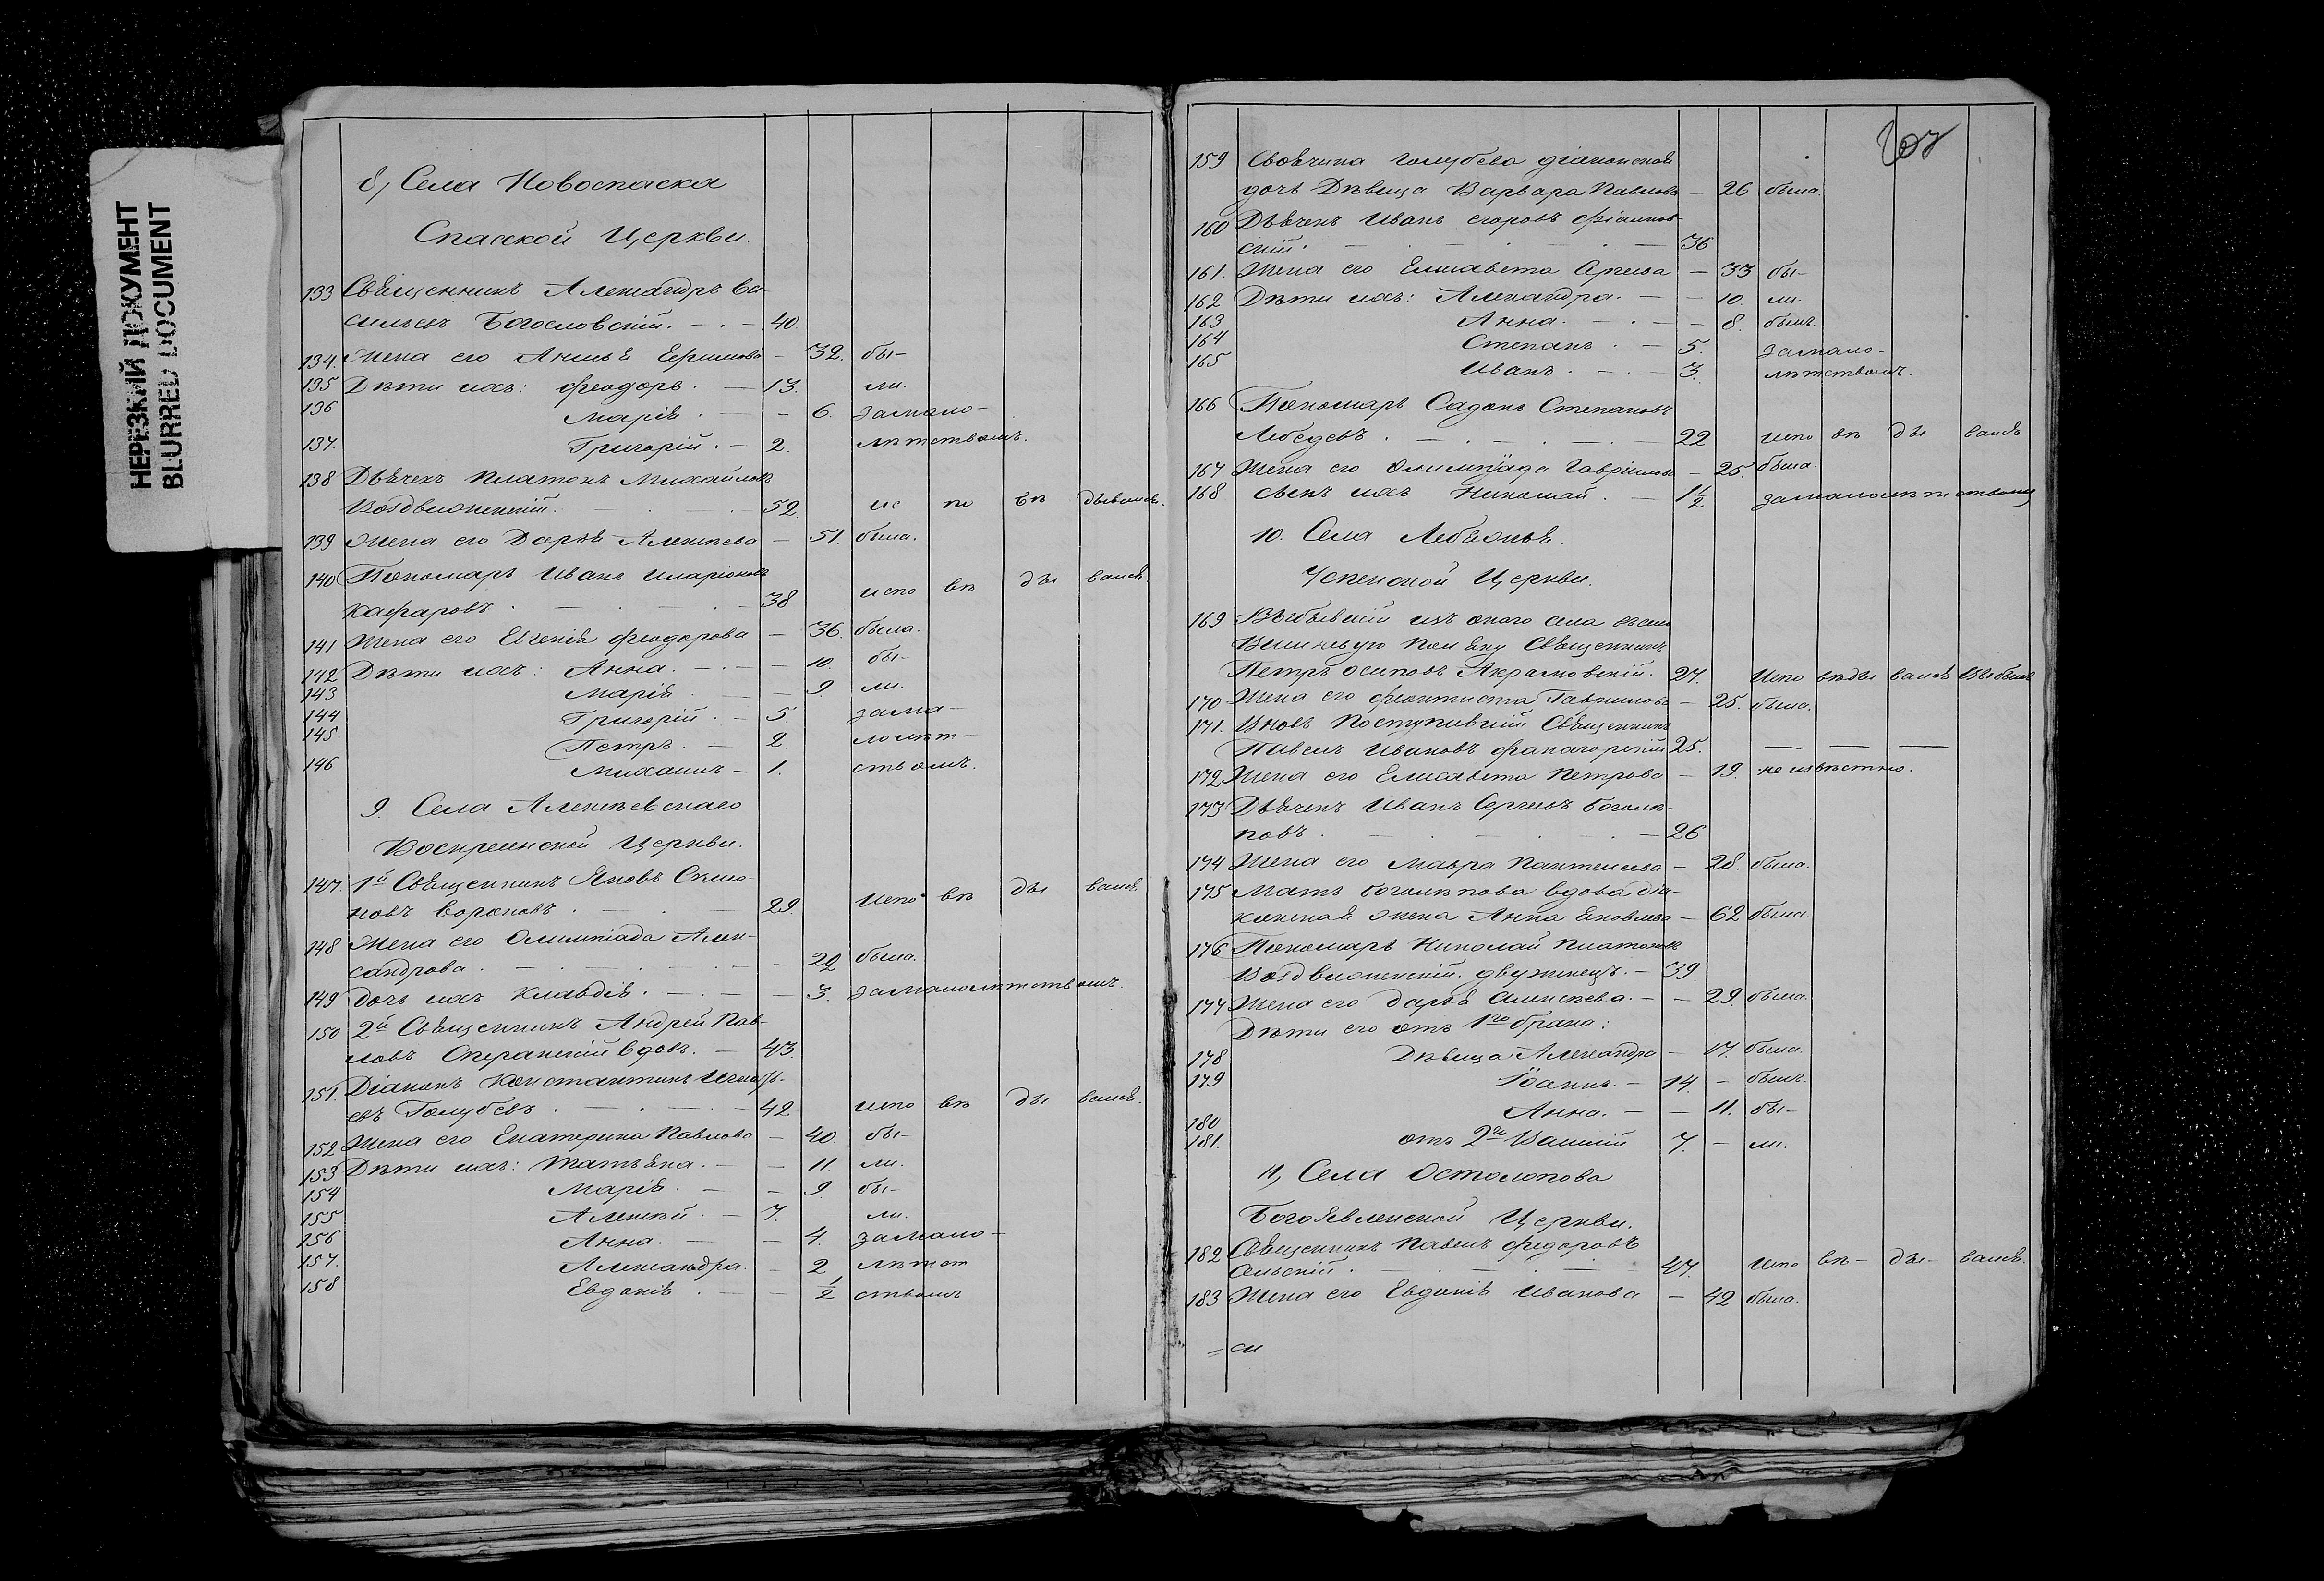 НЕРЕЗКИЙ ДОКУМЕНТ
BLURRED DOCUMENT
8, Села Новоспаска
Спасской Церкви.
133 Священникъ Александръ Ва-
сильевъ Богословскій. - . - 40.
134. Жена его Анисья Ефимова - 32. бы-
135 Дѣти ихъ: Феодоръ. - 13. ли.
136 Марія. - 6. замало-
137. Григорій. - 2. лѣтствомъ.
138 Дьячекъ Платонъ Михайловъ
Воздвиженскій. - 52. ис по вѣ дывался.
139 Жена его Дарья Алексѣева - 51. была.
140 Пономарь Иванъ Иларіоновъ
Кафаровъ. - 38 испо вѣ ды вался.
141 Жена его Евгенія Феодорова - 36. была.
142 Дѣти ихъ: Анна. - 10. бы-
143 Марія. - 9 ли.
144 Григорій. - 5. зама-
145. Петръ. - 2. лолѣт-
146 Михаилъ - 1. ствомъ.
9. Села Алексѣевскаго
Воскресенской Церкви.
147. 1й Священникъ Яковъ
новъ Вороновъ. - 29. испо вѣ ды вался
148 Жена его Олимпіада Алек-
сандрова. - 22 была.
149 дочь ихъ Клавдія. - 3. замалолѣтствомъ.
150 2й Священникъ Андрей Пав-
ловъ Сперанскій вдовъ. - 43.
151. Діаконъ Константинъ
евъ Голубевъ. - 42. испо вѣ ды вался.
152 Жена его Екатерина Павлова - 40. бы-
153 Дѣти ихъ: Татьяна. - 11. ли.
154 Марія. - 9. бы-
155 Алексѣй. - 7. ли.
156 Анна. - 4. замало-
157. Александра. - 2 лѣтст
158 Евдокія. - 1/2 ствомъ
159 Своячина Голубева діаконская
дочь Дѣвица Варвара Павлова - 26 была.
160 Дьячекъ Иванъ Егоровъ
скій. - 36
161. Жена его Елисавета - 33 бы-
162 Дѣти ихъ: Александра. - 10. ли.
163 Анна. - 8. былъ.
164 Степанъ. - 5. замало-
165 Иванъ. - 3. лѣтствомъ.
166 Пономарь Садокъ Степановъ
Лебедевъ. - 22 испо вѣ ды вался
167 Жена его Олимпіада Гаврилова - 25. была.
168 сынъ ихъ Николай. - 1 1/2 замалолѣтствомъ
10. Села Лебяжья.
Успенской Церкви.
169 Выбывшій изъ онаго села въ село
Вишневую Поляну Священникъ
Петръ Осиповъ Акрамовскій. 27. Испо вѣды вался выбылъ
170 Жена его Феоктиста Гаврилова - 25. была.
171. Вновь поступившій Священникъ
Павелъ Ивановъ 25. - - -
172 Жена его Елисавета Петрова - 19. неизвѣстно.
173 Дьячекъ Иванъ Сергѣевъ Боголѣ-
повъ. - 26
174 Жена его Мавра Пантелеева - 28. была.
175 Мать Боголѣпова вдова діа-
конская жена Анна Яковлева - 62 была.
176 Пономарь Николай Платоновъ
Воздвиженскій. двуженецъ. - 39.
177 Жена его Дарья Алексѣева. - 29. была.
Дѣти его отъ 1го брака:
178 Дѣвица Александра - 17. была.
179 Іоаннъ. - 14 - былъ.
180 Анна. - 11. бы-
181. отъ 2го Василій 7. - ли.
11, Села Остолопова
Богоявленской Церкви.
182 Священникъ Павелъ Федоровъ
Сельскій. - 47. испо вѣ- ды- вался.
183 Жена его Евдокія Иванова - 42 была.